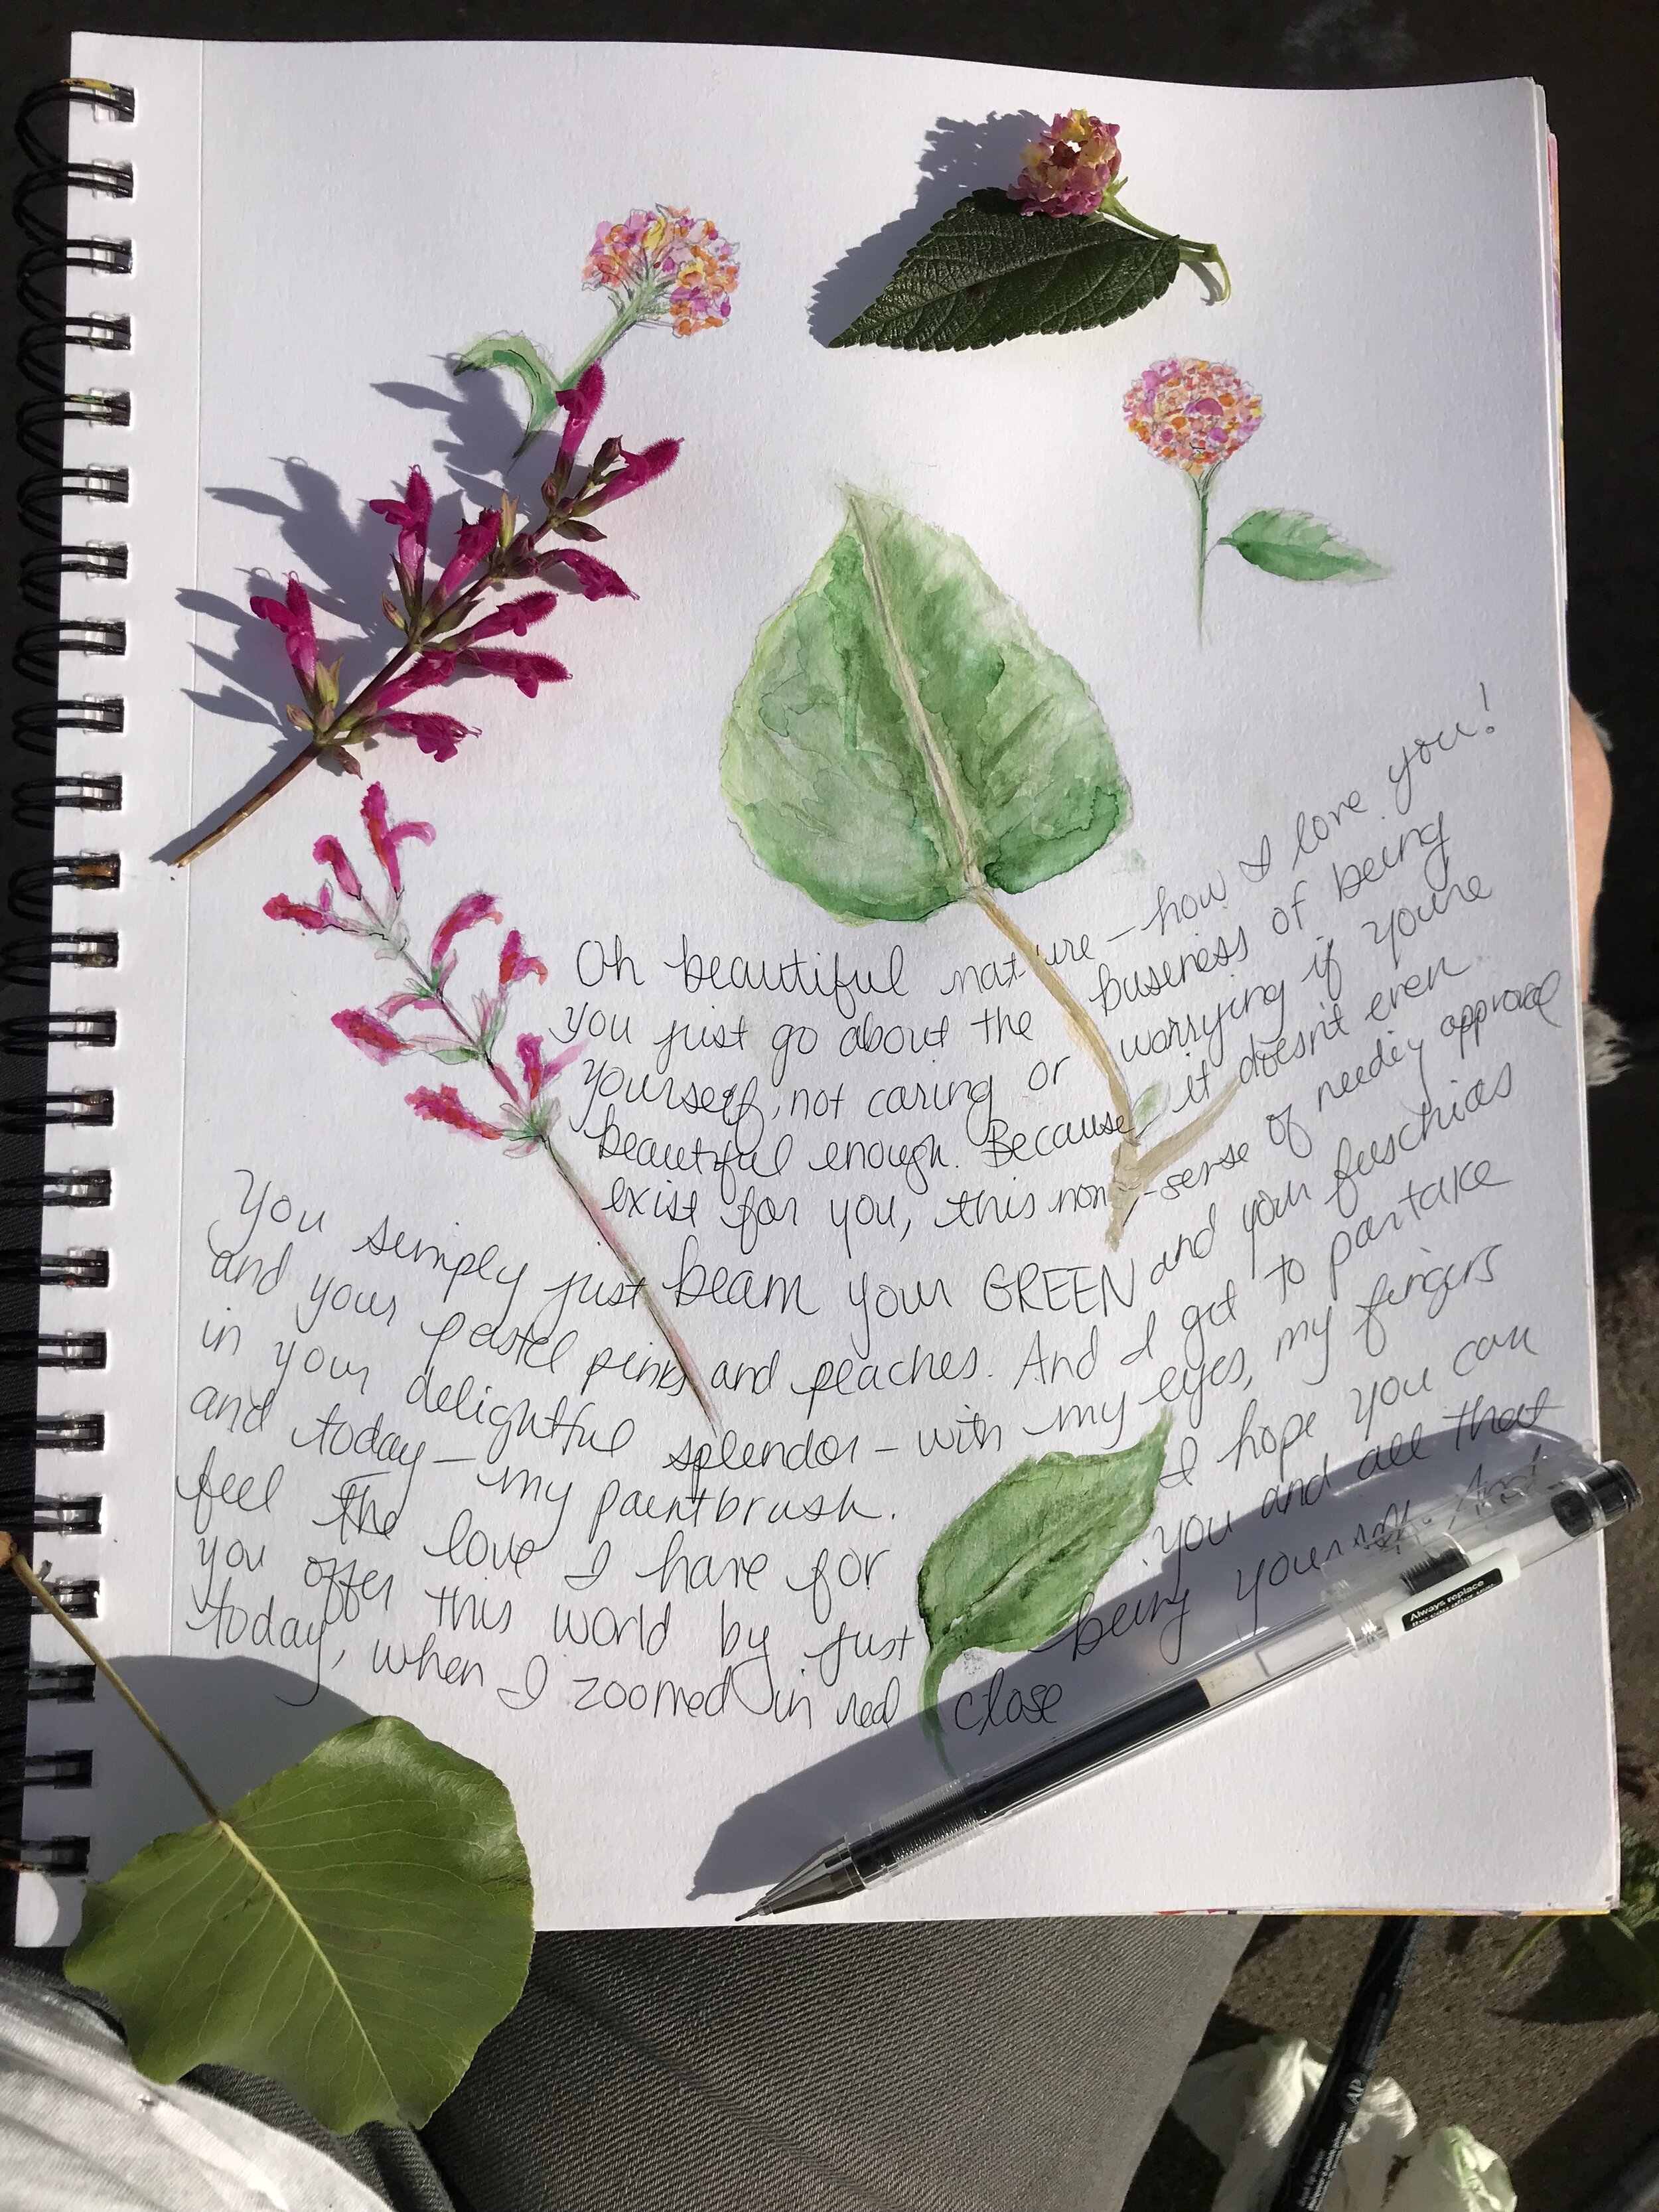 Oh beautiful nature - how I love you!
you just go about the business of being
yourself, not caring or worrying if you're
beautiful enough. Because it doesn't even
exist for you, this non-sense of needing approval
You simply just beam your GREEN and your fuschias
and your pastel pinks and peaches. And I get to partake
in your delightful splendor - with my eyes, my fingers
and today - my paintbrush. I hope you can
feel the love I have for you and all that
you offer this world by just being yourself. And
today, when I zoomed in real close
Always replace
AP